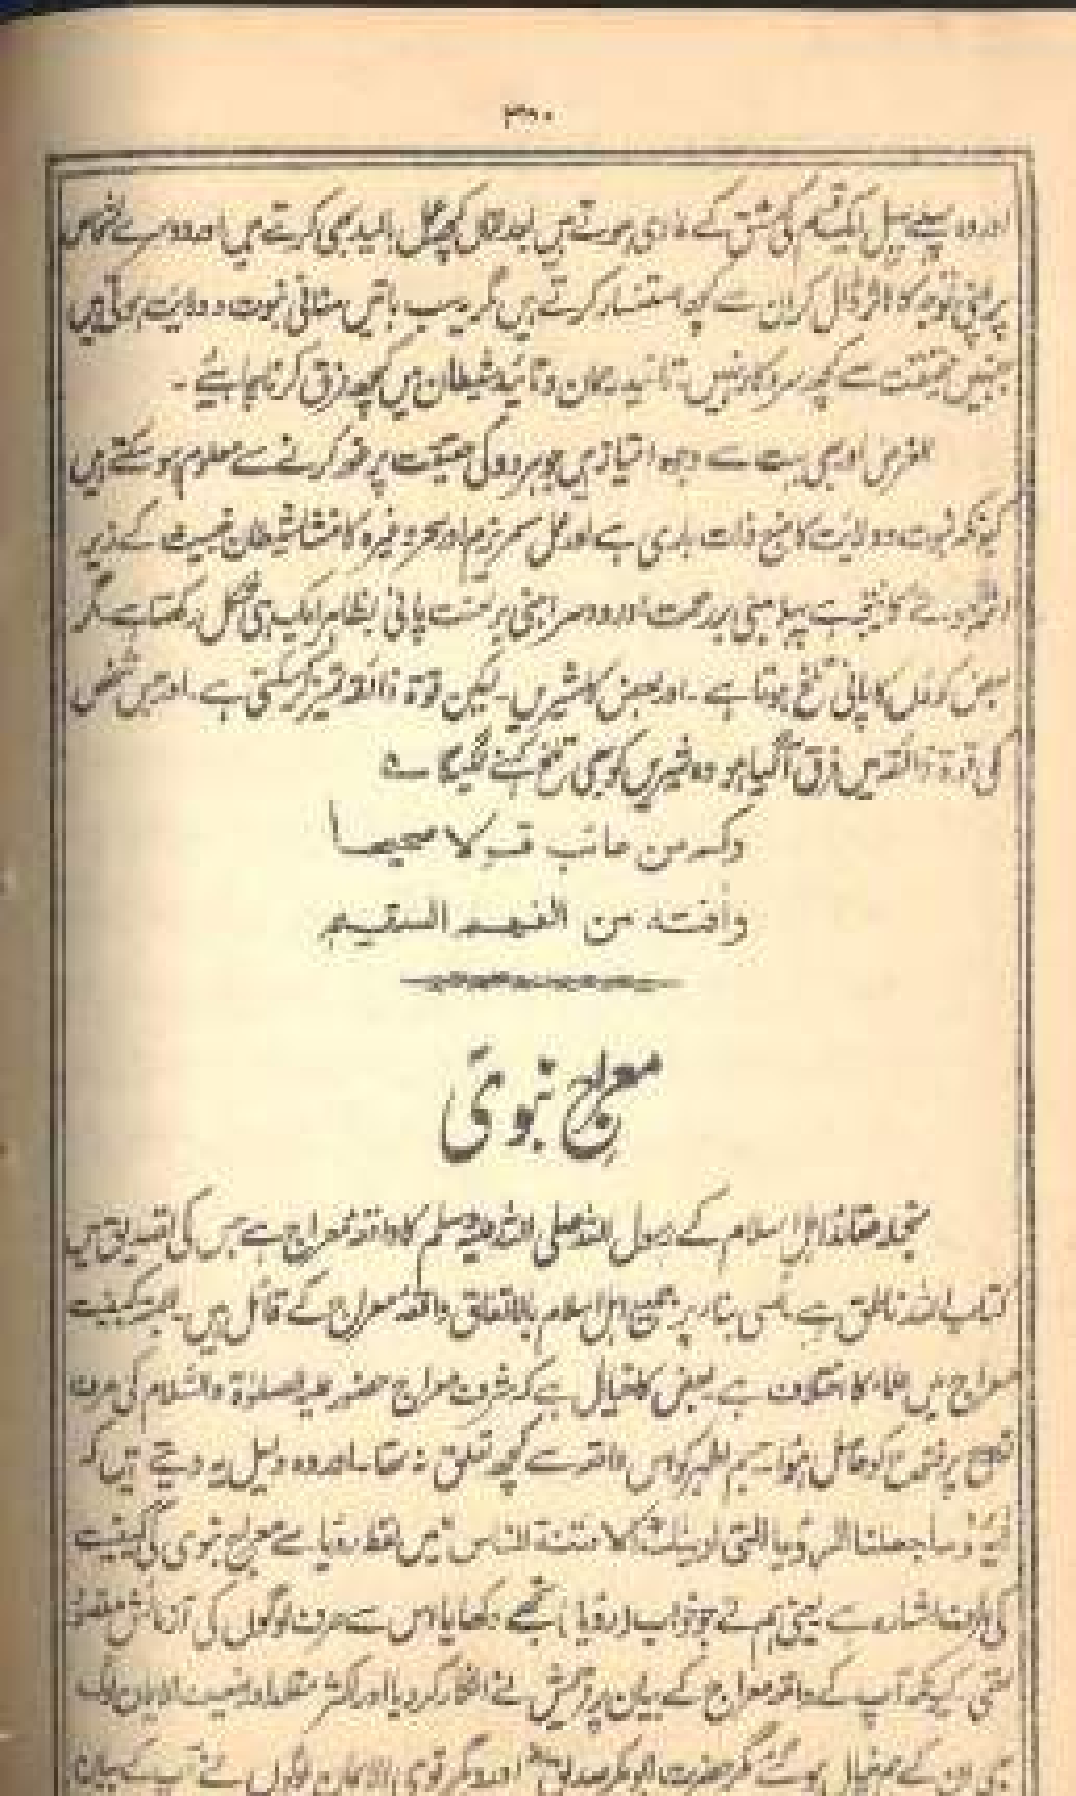 ۳۸۰
اور وہ پہلے پہل ایک قسم کی مشق کے عادی ہوتے ہیں اور کچھ عمل بھی کرتے ہیں اور دوسرے اشخاص
پر اپنی توجہ کا اثر ڈال کر ان سے کچھ استفسار کرتے ہیں مگر یہ سب باتیں منافی نبوت و ولایت ہوتی ہیں
جنہیں حقیقت سے کچھ سروکار نہیں تائید رحمان و تائید شیطان میں کچھ فرق کرنا چاہئے ۔
الغرض اور بھی بہت سے وجوہ امتیاز ہیں جو ہر دو کی حقیقت پر غور کرنے سے معلوم ہو سکتے ہیں
کیونکہ نبوت و ولایت کا منبع ذات باری ہے اور عمل مسمریزم اور سحر وغیرہ کا منشا شیطان خبیث کے زیر
اثر ہونے کا نتیجہ ہے پہلا مبنی بر رحمت اور دوسرا مبنی بر لعنت پانی بظاہر ایک ہی شکل رکھتا ہے مگر
بعض کا پانی تلخ ہوتا ہے ۔ اور بعض کا شیریں ۔ لیکن قوۃ ذائقہ تمیز کر سکتی ہے ۔ اور جس شخص
کی قوۃ ذائقہ میں فرق آگیا ہو وہ شیریں کو بھی تلخ کہنے لگیگا ؎
وکم من عائب قولا صحیحا
وآفتہ من الفہم السقیم
معراج نبوی
منجملہ عقائد اہل اسلام کے رسول اللہ صلی اللہ علیہ وسلم کا واقعہ معراج ہے جس کی تصدیق میں
کتاب اللہ ناطق ہے ۔ اسی بنا پر جمیع اہل اسلام بالاتفاق واقعہ معراج کے قائل ہیں ۔ البتہ کیفیت
معراج میں علماء کا اختلاف ہے بعض کا خیال ہے کہ شرف معراج حضور علیہ الصلوٰۃ والسلام کی صرف
روح پر فتوح کو حاصل ہوا ۔ جسم اطہر کو اس واقعہ سے کچھ تعلق نہ تھا ۔ اور وہ دلیل یہ دیتے ہیں کہ
آیہ وما جعلنا الرؤیا التی اریناک الا فتنۃ للناس میں لفظ رؤیا سے معراج نبوی کی کیفیت
کی طرف اشارہ ہے یعنی ہم نے جو خواب (رؤیا) تجھے دکھایا اس سے صرف لوگوں کی آزمائش مقصود
تھی ۔ کیونکہ آپ کے واقعہ معراج کے بیان پر قریش نے انکار کر دیا اور اکثر ضعیف الایمان لوگ
بھی ان کے ہم خیال ہو گئے مگر حضرت ابوبکر صدیق اور دیگر قوی الایمان لوگوں نے آپ کے بیان